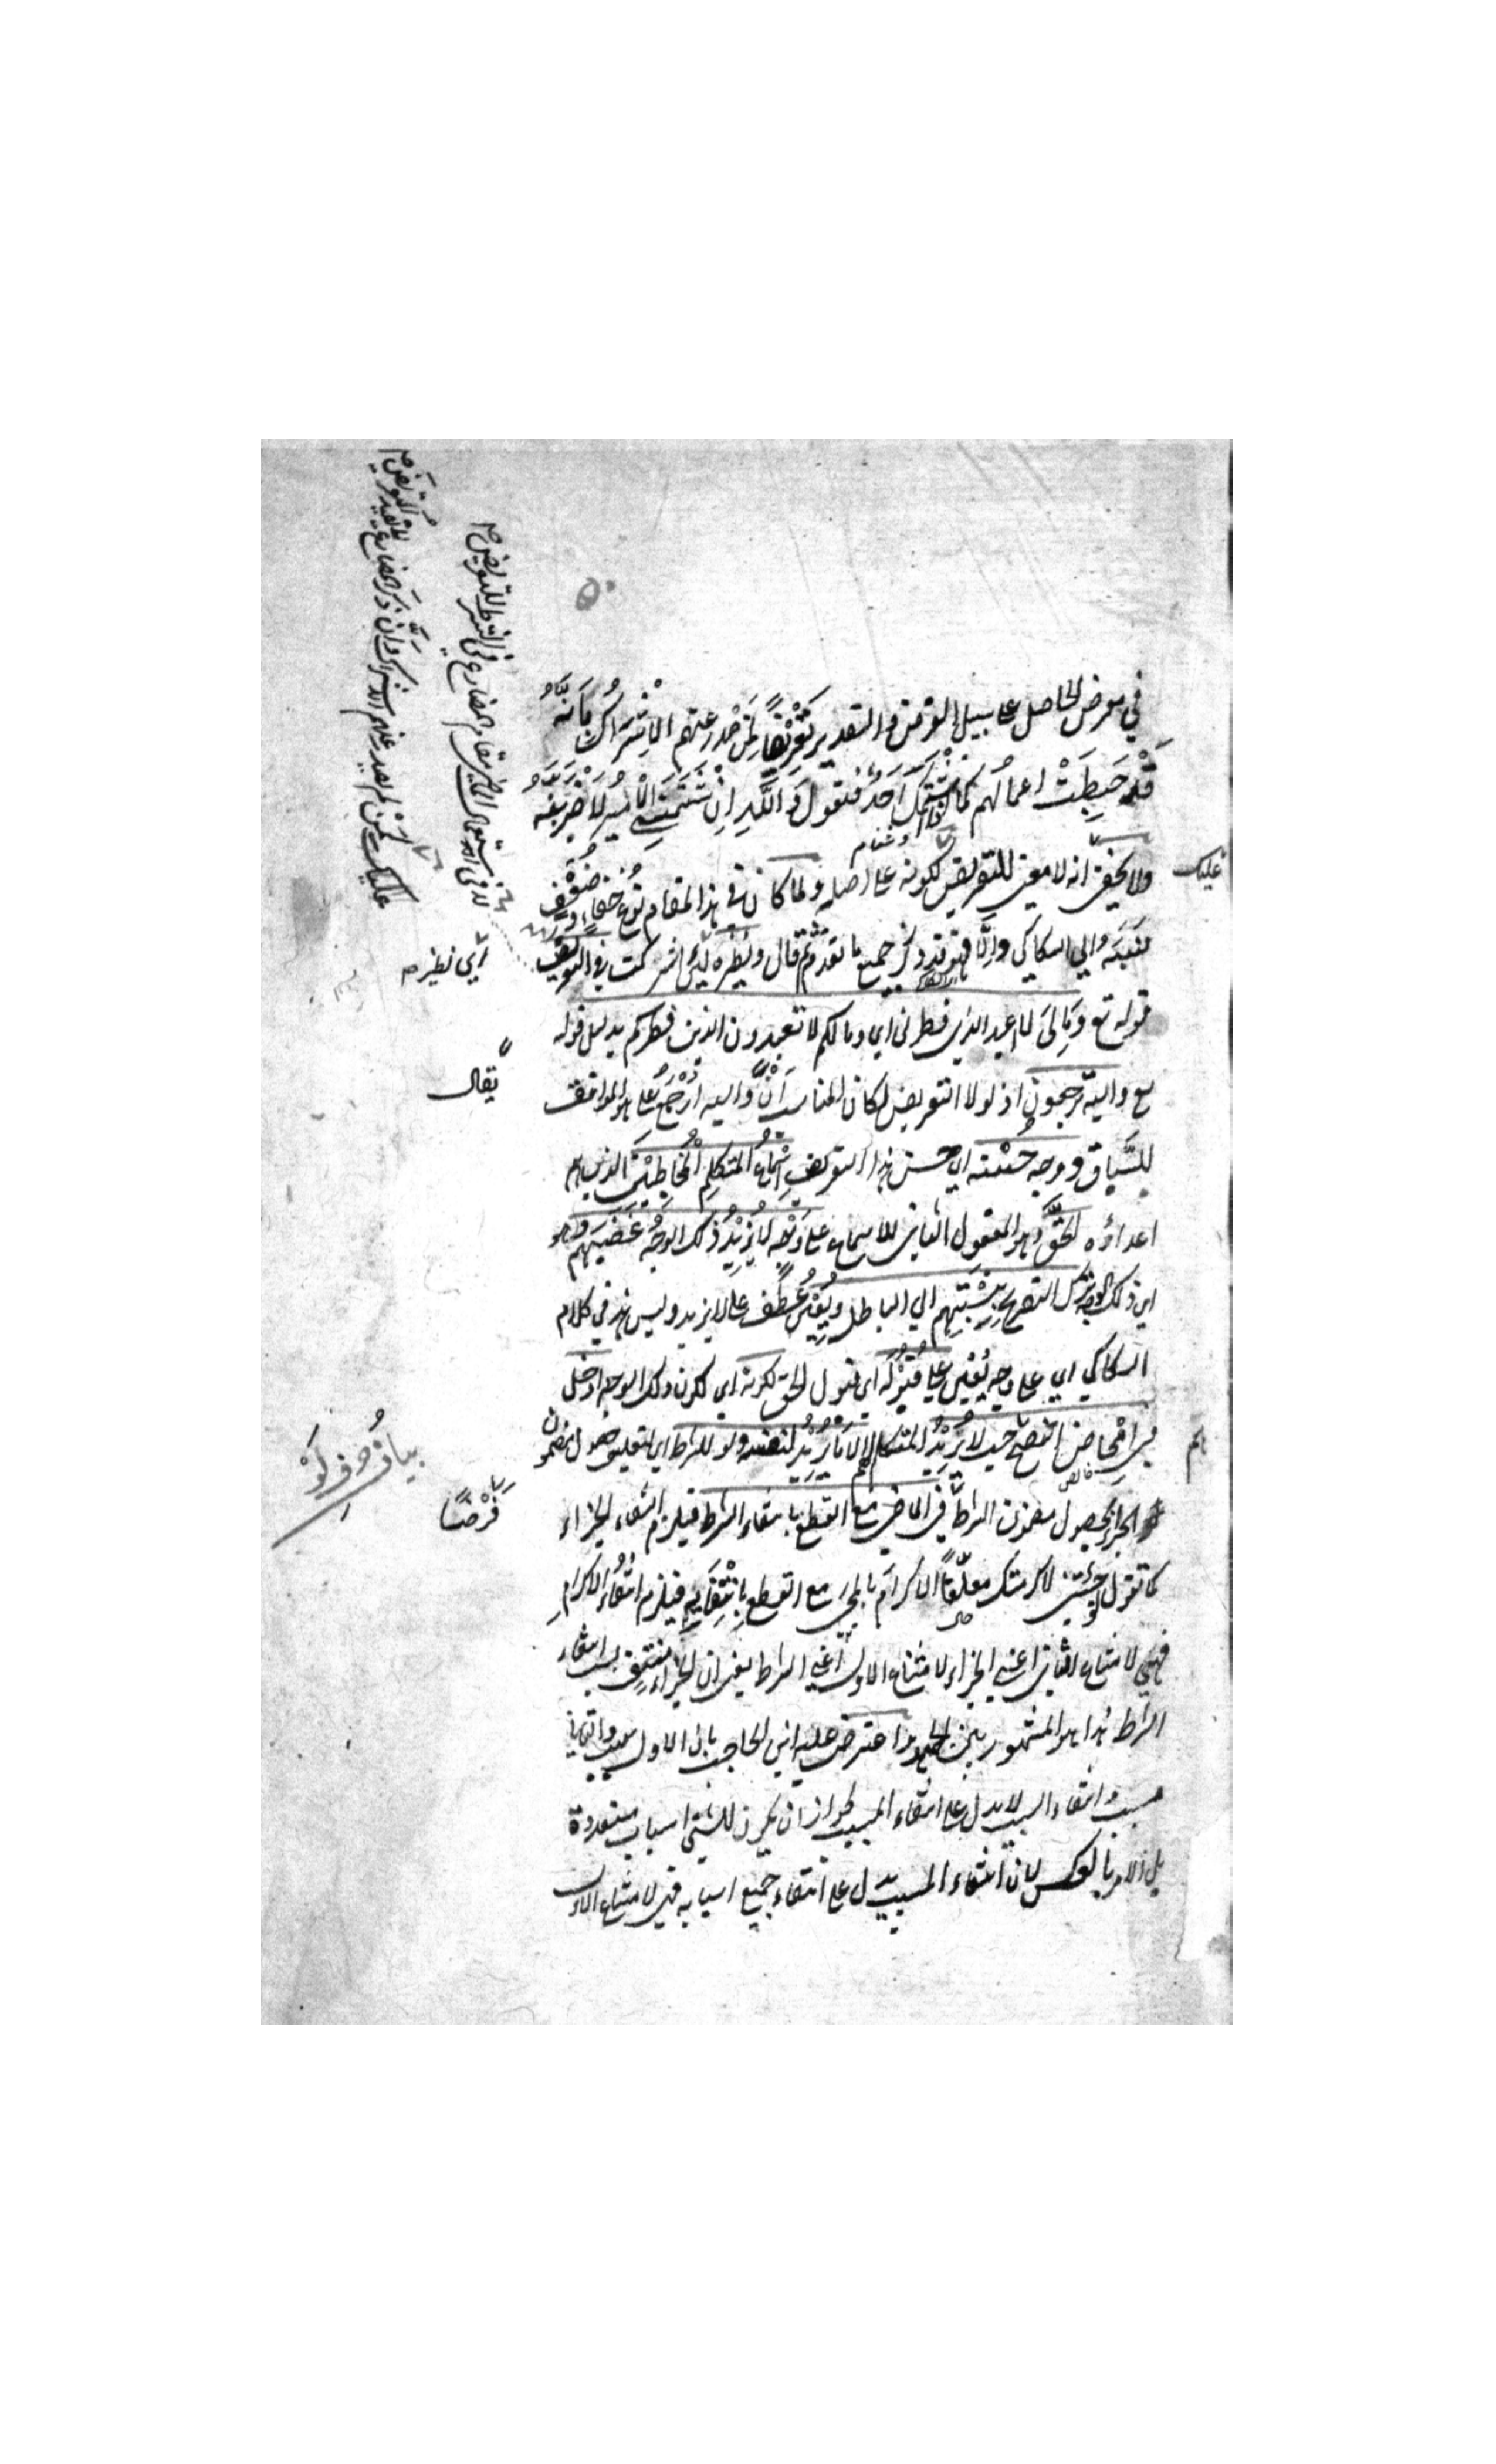 في معرض الحاصل على سبيل الفرض والتقدير تَعْرِيْضًا لمن صدر عنهم الْاِشْرَاكُ بِاَنَّهُ
قَدْ حَبِطَتْ اعمالهم كما اذا شَتَمَكَ اَحَدٌ فتقول وَاللّٰهِ اِنْ شَتَمَنِي الْاَمِيْرُ لَاَضْرِبَنَّهُ
ولا يخفى عليك انه لا معنى للتعريض لكونه على اصله ولما كان في هذا المقام نوع خفاءٍ وضُعْفٍ
نَسَبَه الى السكاكي واِلَّا فهو قد ذكر جميع ما تقدم ثم قال ونظيره لئن اشركت في التعريض
قوله تع وَمَا لِيَ لا اعبد الذي فطرنى اي وما لكم لا تعبدون الذي فطركم بدليل قوله
تع واليه ترجعون اذ لولا التعريض لكان المناسب اَنْ يقال واليه اُرْجَعُ على ما هو الموافق
للسَّيَاق ووجه حُسْنه اي حسن هذا التعريض اِسْمَاعُ المتكلم الْمُخَاطَبِيْنَ الذين هم
اعداؤه الحَقَّ هو المفعول الثاني للاسماع على وَجْهٍ لَا يَزِيْدُ ذلك الوَجْهُ غَضَبَهم وهو
اي ذلك الوجه ترك التصريح بِنِسْبَتِهم الي الباطل ويُعِيْنُ عطف على لا يزيد وليس هذا في كلام
السكاكي اي على وجه يُعين على قَبُوْلِه اي قبول الحق لكونه اي لكون ذلك الوجه ادخل
في اِمْحَاض النصح حيث لا يُرِيْدُ المتكلم لهم الا مَا يُرِيْدُ لنفسه ولو للشرط اي لتعليق حصول مضمون
الجزاء بحصول مضمون الشرط فَرْضًا في الماضي مع القطع بانتفاء الشرط فيلزم انتفاء الجزاء
كما تقول لو جِئْتَنِي لاكرمتك معلِّقًا الاكرام بالمجئ مع القطع بِانْتِفَائِهِ فيلزم انتفاء الاكرام
فهي لامتناع الثاني اعني الجزاء لامتناع الاول اعني الشرط يعني ان الجزاء منتفٍ بسبب انتفاء
الشرط هذا هو المشهور بين الجمهور واعترض عليه ابن الحاجب بان الاول سبب والثاني
مسبب وانتفاء السبب لا يدل على انتفاء المسبب لجواز ان يكون للشئ اسباب متعددة
بل الامر بالعكس لان انتفاء المسبب يدل على انتفاء جميع اسبابه فهي لامتناع الاول
اي نظيره
يقال
بيان حرف لَوْ
فَرْضًا
عليك